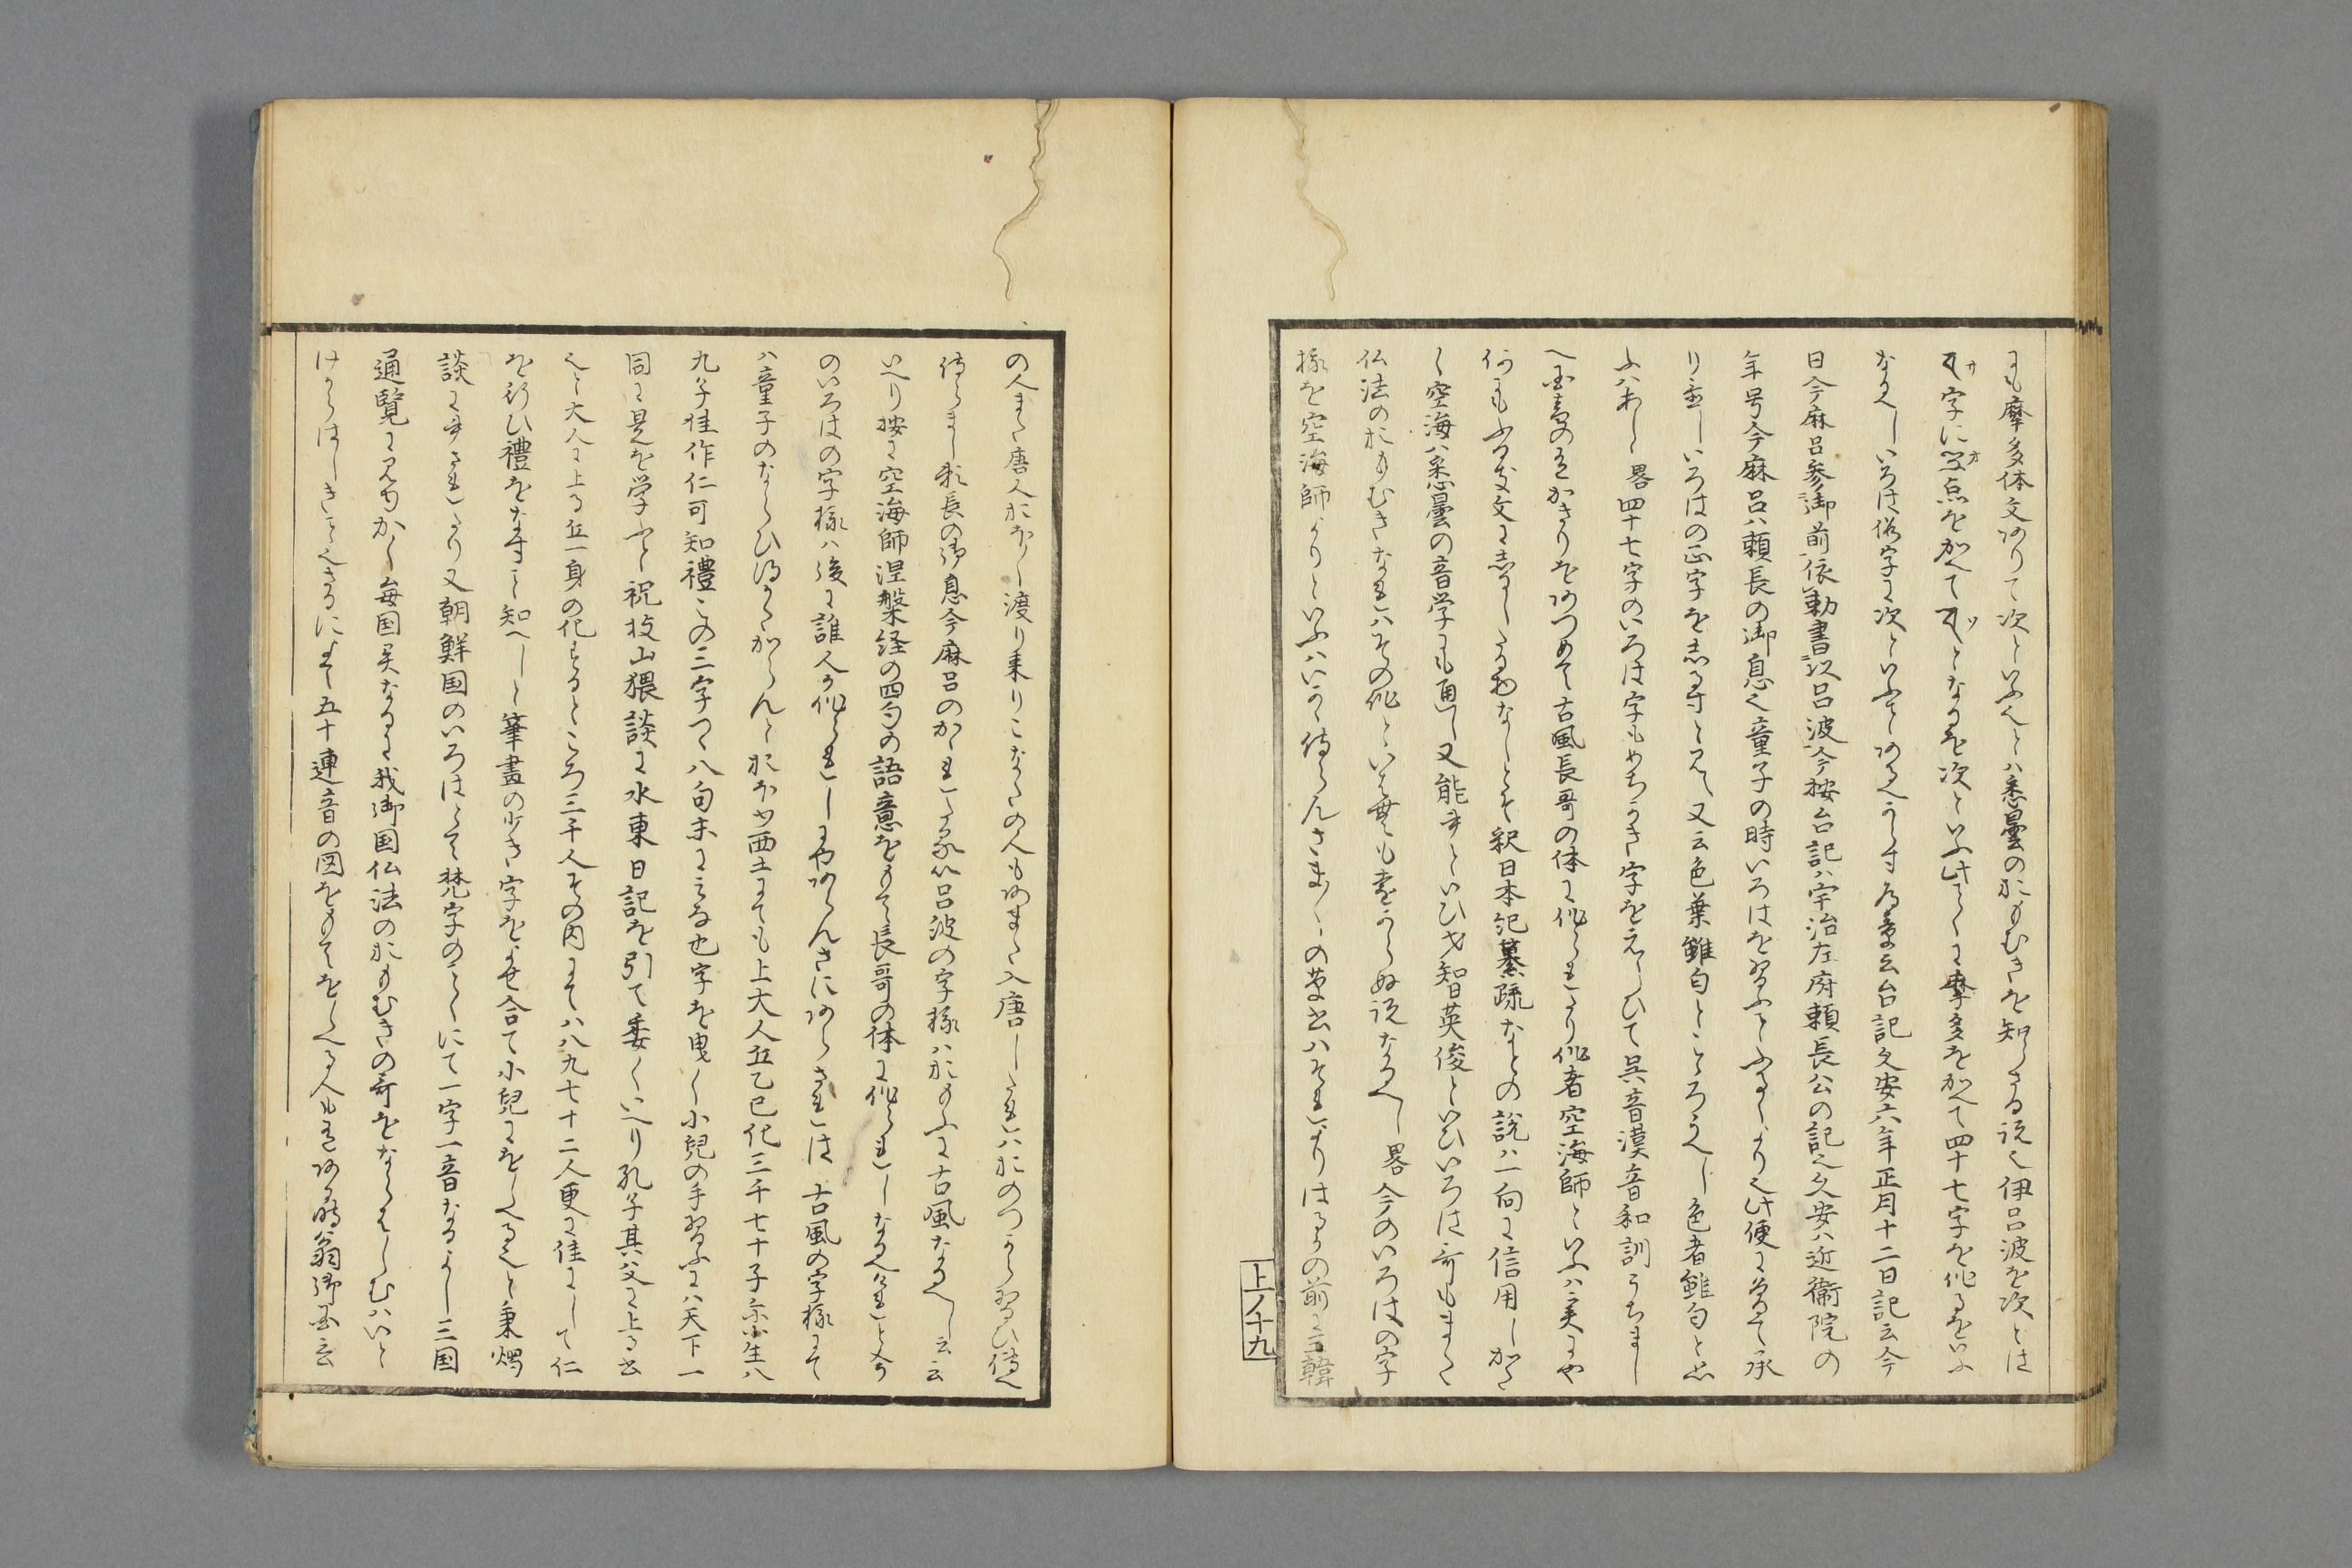 にも摩多体文ありて次といふことハ悉曇のおもむきを知らさる説也伊呂波を次とは
字に空点を加へてとなるを次といふ此ことに摩多を加へて四十七字を作るをいふ
なるへしいろは俗字を次といふことあるへからす 台記久安六年正月十二日記云今
日今麻呂参御前依勅書以呂波今按台記ハ宇治左府頼長公の記也久安ハ近衛院の
年号今麻呂ハ頼長の御息也童子の時いろはを習ふことふるくよりの也此便に 承
りいろはの正字をしるすと見ゆ又云色葉雖匂とことろうへし色者雖匂と
ふハわろし 畧 四十七字のいろは字もめちかき字をえらひて呉音漢音和訓うちまし
へ のかきりをあつめて古風長哥の体に作られたり作者空海師といふハ実にや
何にもふるき文にしるしたる物なしとそ釈日本紀纂疏なとの説ハ一向に信用しかた
し空海ハ悉曇の音学にも通し又能書といひ才智英俊といひいろは哥もまた
仏法のおもむきなれハその作といはむも違うらぬ説なるへし 畧 今のいろはの字
様を空海師よりといふハいかゝ侍らんさまくの草書ハそれよりはるかの前に三韓
上ノ十九
の人また唐人おほく渡り来りこなたの人もあまた入唐したれハおのつから習ひ伝へ
侍らまし頼長の御息今麻呂のかゝれたる以呂波の字様ハおもふに古風なるへし云云
いへり按に空海師涅槃経の四句の語意をもて長哥の体に作られしなるへけれと今
のいろはの字様ハ後に誰人か作られしにやあらんさにあらされは古風の字様にて
ハ童子のならひ得かたからんとおほゆ西土にても上大人丘乙己化三千七十子尓小生八
九子佳作仁可知禮この三字つゝ八句末にみな也字を曳く小兒の手習ふにハ天下一
同に是を学ふと祝枝山猥談に水東日記を引て委くいへり孔子其父に上る書
也と大人に上る丘一身の化するところ三千人その内にてハ八九七十二人更に佳にして仁
を行ひ禮をなすこと知へしと筆畫の少き字をよせ合て小兒にをしへる也と秉燭
談に申されたり又朝鮮国のいろはとて梵字のことくにて一字一音なるよし三国
通覧に見ゆかく毎国異なるに我御国仏法のおもむきの哥をならはしむハいと
けからはしきことゝへさるによて五十連音の図をもてをしへる人も有ある翁御国言